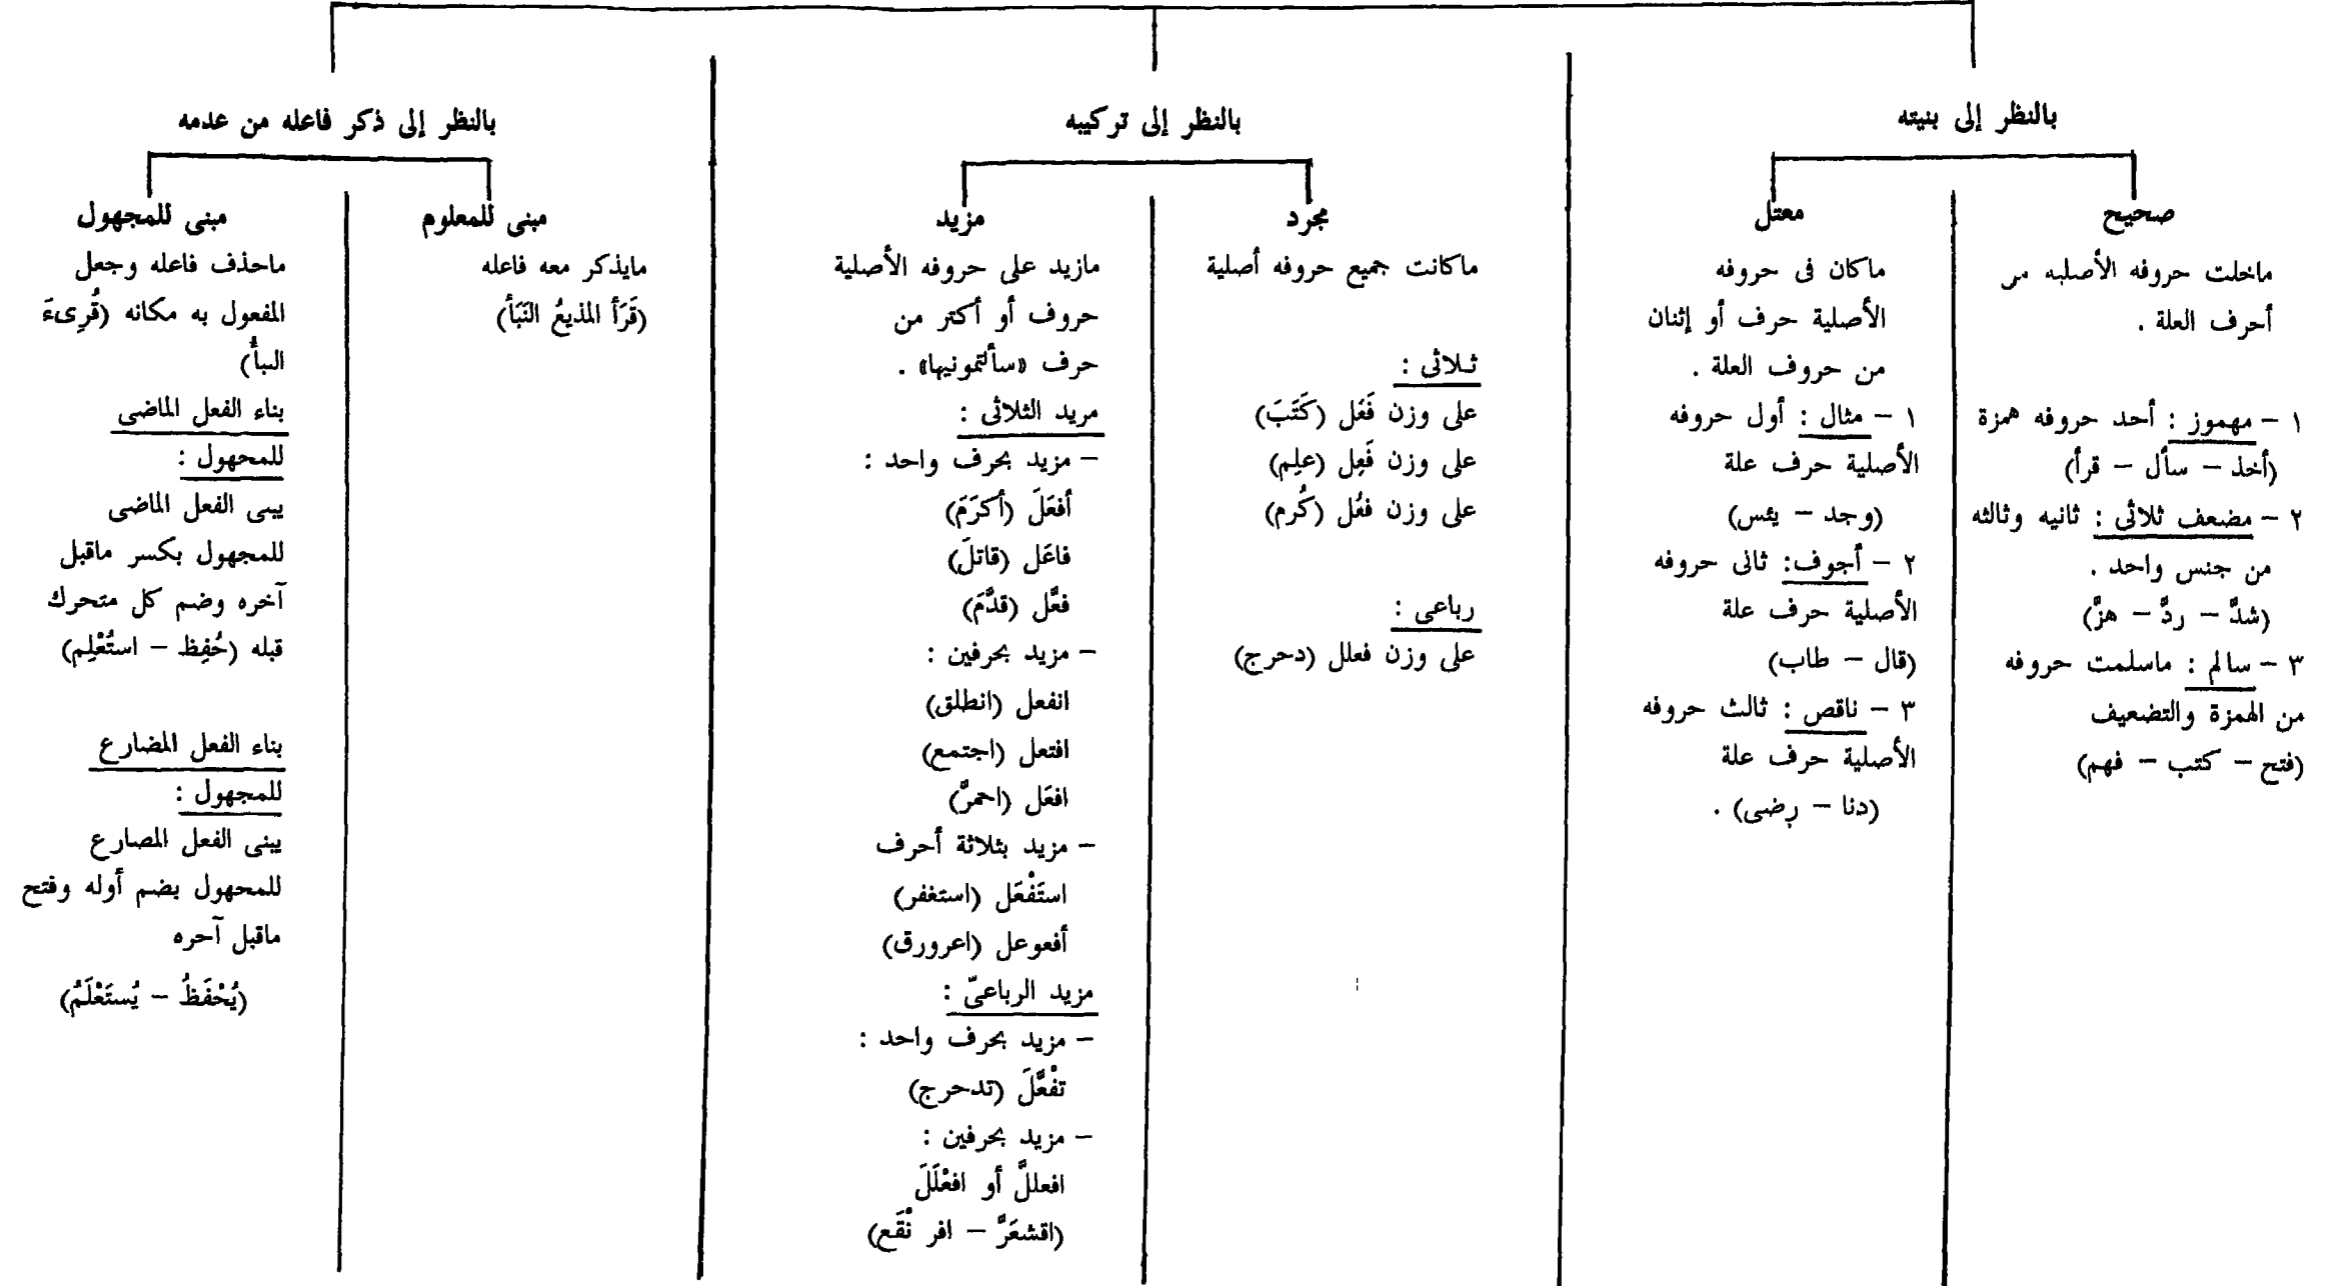 بالنظر إلى بنيته
صحيح
ماخلت حروفه الأصليه من
أحرف العلة .
١ – مهموز : أحد حروفه همزة
(أخذ – سأل – قرأ)
٢ – مضعف ثلاثى : ثانيه وثالثه
من جنس واحد .
(شدَّ – ردَّ – هزَّ)
٣ – سالم : ماسلمت حروفه
من الهمزة والتضعيف
(فتح – كتب – فهم)
معتل
ماكان فى حروفه
الأصلية حرف أو إثنان
من حروف العلة .
١ – مثال : أول حروفه
الأصلية حرف علة
(وجد – يئس)
٢ – أجوف: ثانى حروفه
الأصلية حرف علة
(قال – طاب)
٣ – ناقص : ثالث حروفه
الأصلية حرف علة
(دنا – رضى) .
بالنظر إلى تركيبه
مجرد
ماكانت جميع حروفه أصلية
ثلاثى :
على وزن فَعَل (كَتَبَ)
على وزن فَعِل (علِم)
على وزن فعُل (كُرم)
رباعى :
على وزن فعلل (دحرج)
مزيد
مازيد على حروفه الأصلية
حروف أو أكثر من
حرف «سألتمونيها» .
مريد الثلاثى :
– مزيد بحرف واحد :
أفعَلَ (أكرَمَ)
فاعَل (قاتلَ)
فعَّل (قدَّمَ)
– مزيد بحرفين :
انفعل (انطلق)
افتعل (اجتمع)
افعَل (احمرَّ)
– مزيد بثلاثة أحرف
استَفْعَل (استغفر)
أفعوعل (اعرورق)
مزيد الرباعىّ :
– مزيد بحرف واحد :
تفْعَّلَ (تدحرج)
– مزيد بحرفين :
افعللَّ أو افعْلَلَ
(اقشعَرَّ – افر نْقَع)
بالنظر إلى ذكر فاعله من عدمه
مبنى للمعلوم
مايذكر معه فاعله
(قَرَأ المذيعُ النَبَأ)
مبنى للمجهول
ماحذف فاعله وجعل
المفعول به مكانه (قُرِىءَ
النبأُ)
بناء الفعل الماضى
للمحهول :
يبنى الفعل الماضى
للمجهول بكسر ماقبل
آخره وضم كل متحرك
قبله (حُفِظ – استُعْلِم)
بناء الفعل المضارع
للمجهول :
يبنى الفعل المصارع
للمحهول بضم أوله وفتح
ماقبل آحره
(يُحْفَظُ – يُستَعْلَمُ)